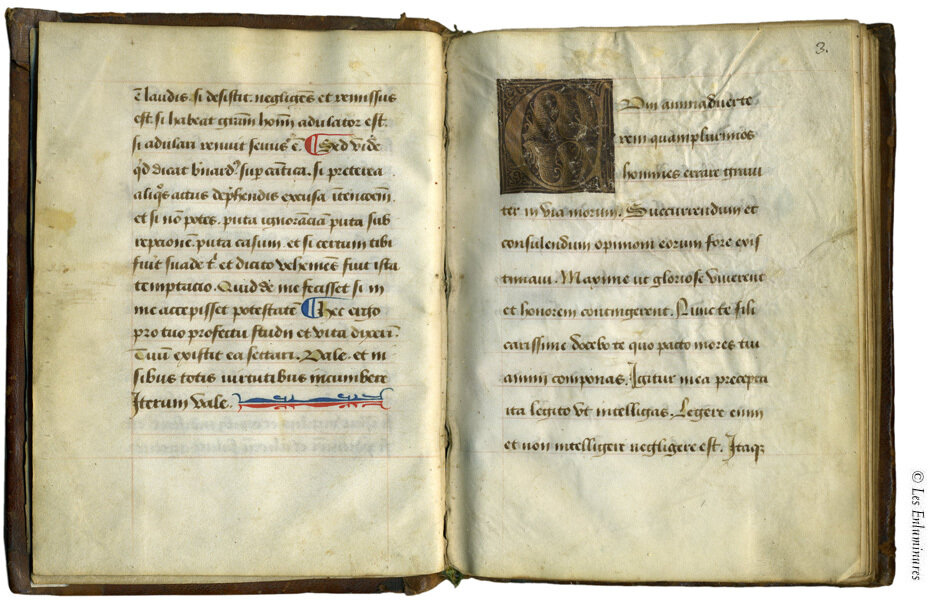 Claudis. si desistit negligēs et remissus
est. si habeat grām̄ homīn̄ adulator est.
si adulari renuit seuus ē. Sed vide
qd̄ dicat b'nard9 sup cātica. si preterea
aliq̄s actus dep̄hendis excusa ītencōem̄.
et si nō potes. puta ignorāciā puta sub
repcionē. puta casum. et si certum tibi
fuit suade t' et dicito vehemēs fuit ista
temptacio. Quid de me fecisset si in
me accepisset potestatē Hec ergo
pro tuo profectu studii et vita dixerī.
Tuū existit ea sectari. Vale. et in
sibus totis uirtutibus incumbere
Iterum vale.
3.
CVm animaduerte
rem quamplurimos
homines errare graui
ter in via morum. Succurrendum et
consulendum opinioni eorum fore exis
timaui. Maxime ut gloriose viuerent
et honorem contingerent. Nunc te fili
carissime docebo te quo pacto mores tui
animi componas. Igitur mea precepta
ita legito vt intelligas. Legere enim
et non intelligere negligere est. Itaq;
© Les Enluminures